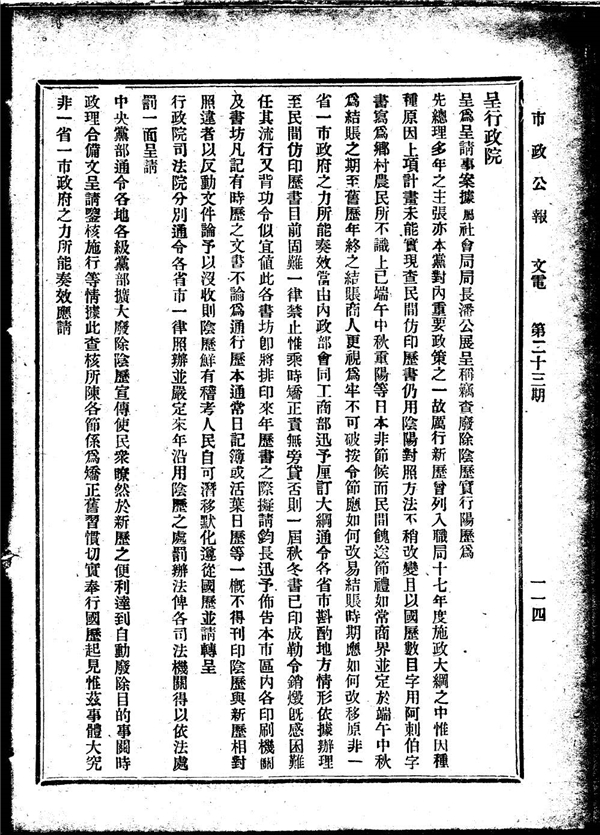 市政公報　文電　第三十三期　一一四
呈行政院
呈爲呈請事案據屬社會局局長潘公展呈稱竊查廢除陰歷實行陽歷爲
先總理多年之主張亦本黨對內重要政策之一故厲行新歷曾列入職局十七年度施政大綱之中惟因種
種原因上項計畫未能實現查民間仿印歷書仍用陰陽對照方法不稍改變且以國歷數目字用阿剌伯字
書寫爲鄉村農民所不識上巳端午中秋重陽等日本非節候而民間餽送節禮如常商界並定於端午中秋
爲結賬之期至舊歷年終之結賬商人更視爲牢不可破按令節應如何改易結賬時期應如何改移原非一
省一市政府之力所能奏效當由內政部會同工商部迅予厘訂大綱通令各省市斟酌地方情形依據辦理
至民間仿印歷書目前固難一律禁止惟乘時矯正責無旁貸否則一屆秋冬書已印成勒令銷燬旣感困難
任其流行又背功令似宜値此各書坊卽將排印來年歷書之際擬請鈞長迅予佈告本市區內各印刷機關
及書坊凡記有時歷之文書不論爲通行歷本通常日記簿或活葉日歷等一槪不得刊印陰歷與新歷相對
照違者以反動文件論予以沒收則陰歷鮮有稽考人民自可潛移默化遵從國歷並請轉呈
行政院司法院分別通令各省市一律照辦並嚴定來年沿用陰歷之處罰辦法俾各司法機關得以依法處
罰一面呈請
中央黨部通令各地各級黨部擴大廢除陰歷宣傳使民衆瞭然於新歷之便利達到自動廢除目的事關時
政理合備文呈請鑒核施行等情據此查核所陳各節係爲矯正舊習慣切實奉行國歷起見惟茲事體大究
非一省一市政府之力所能奏效應請